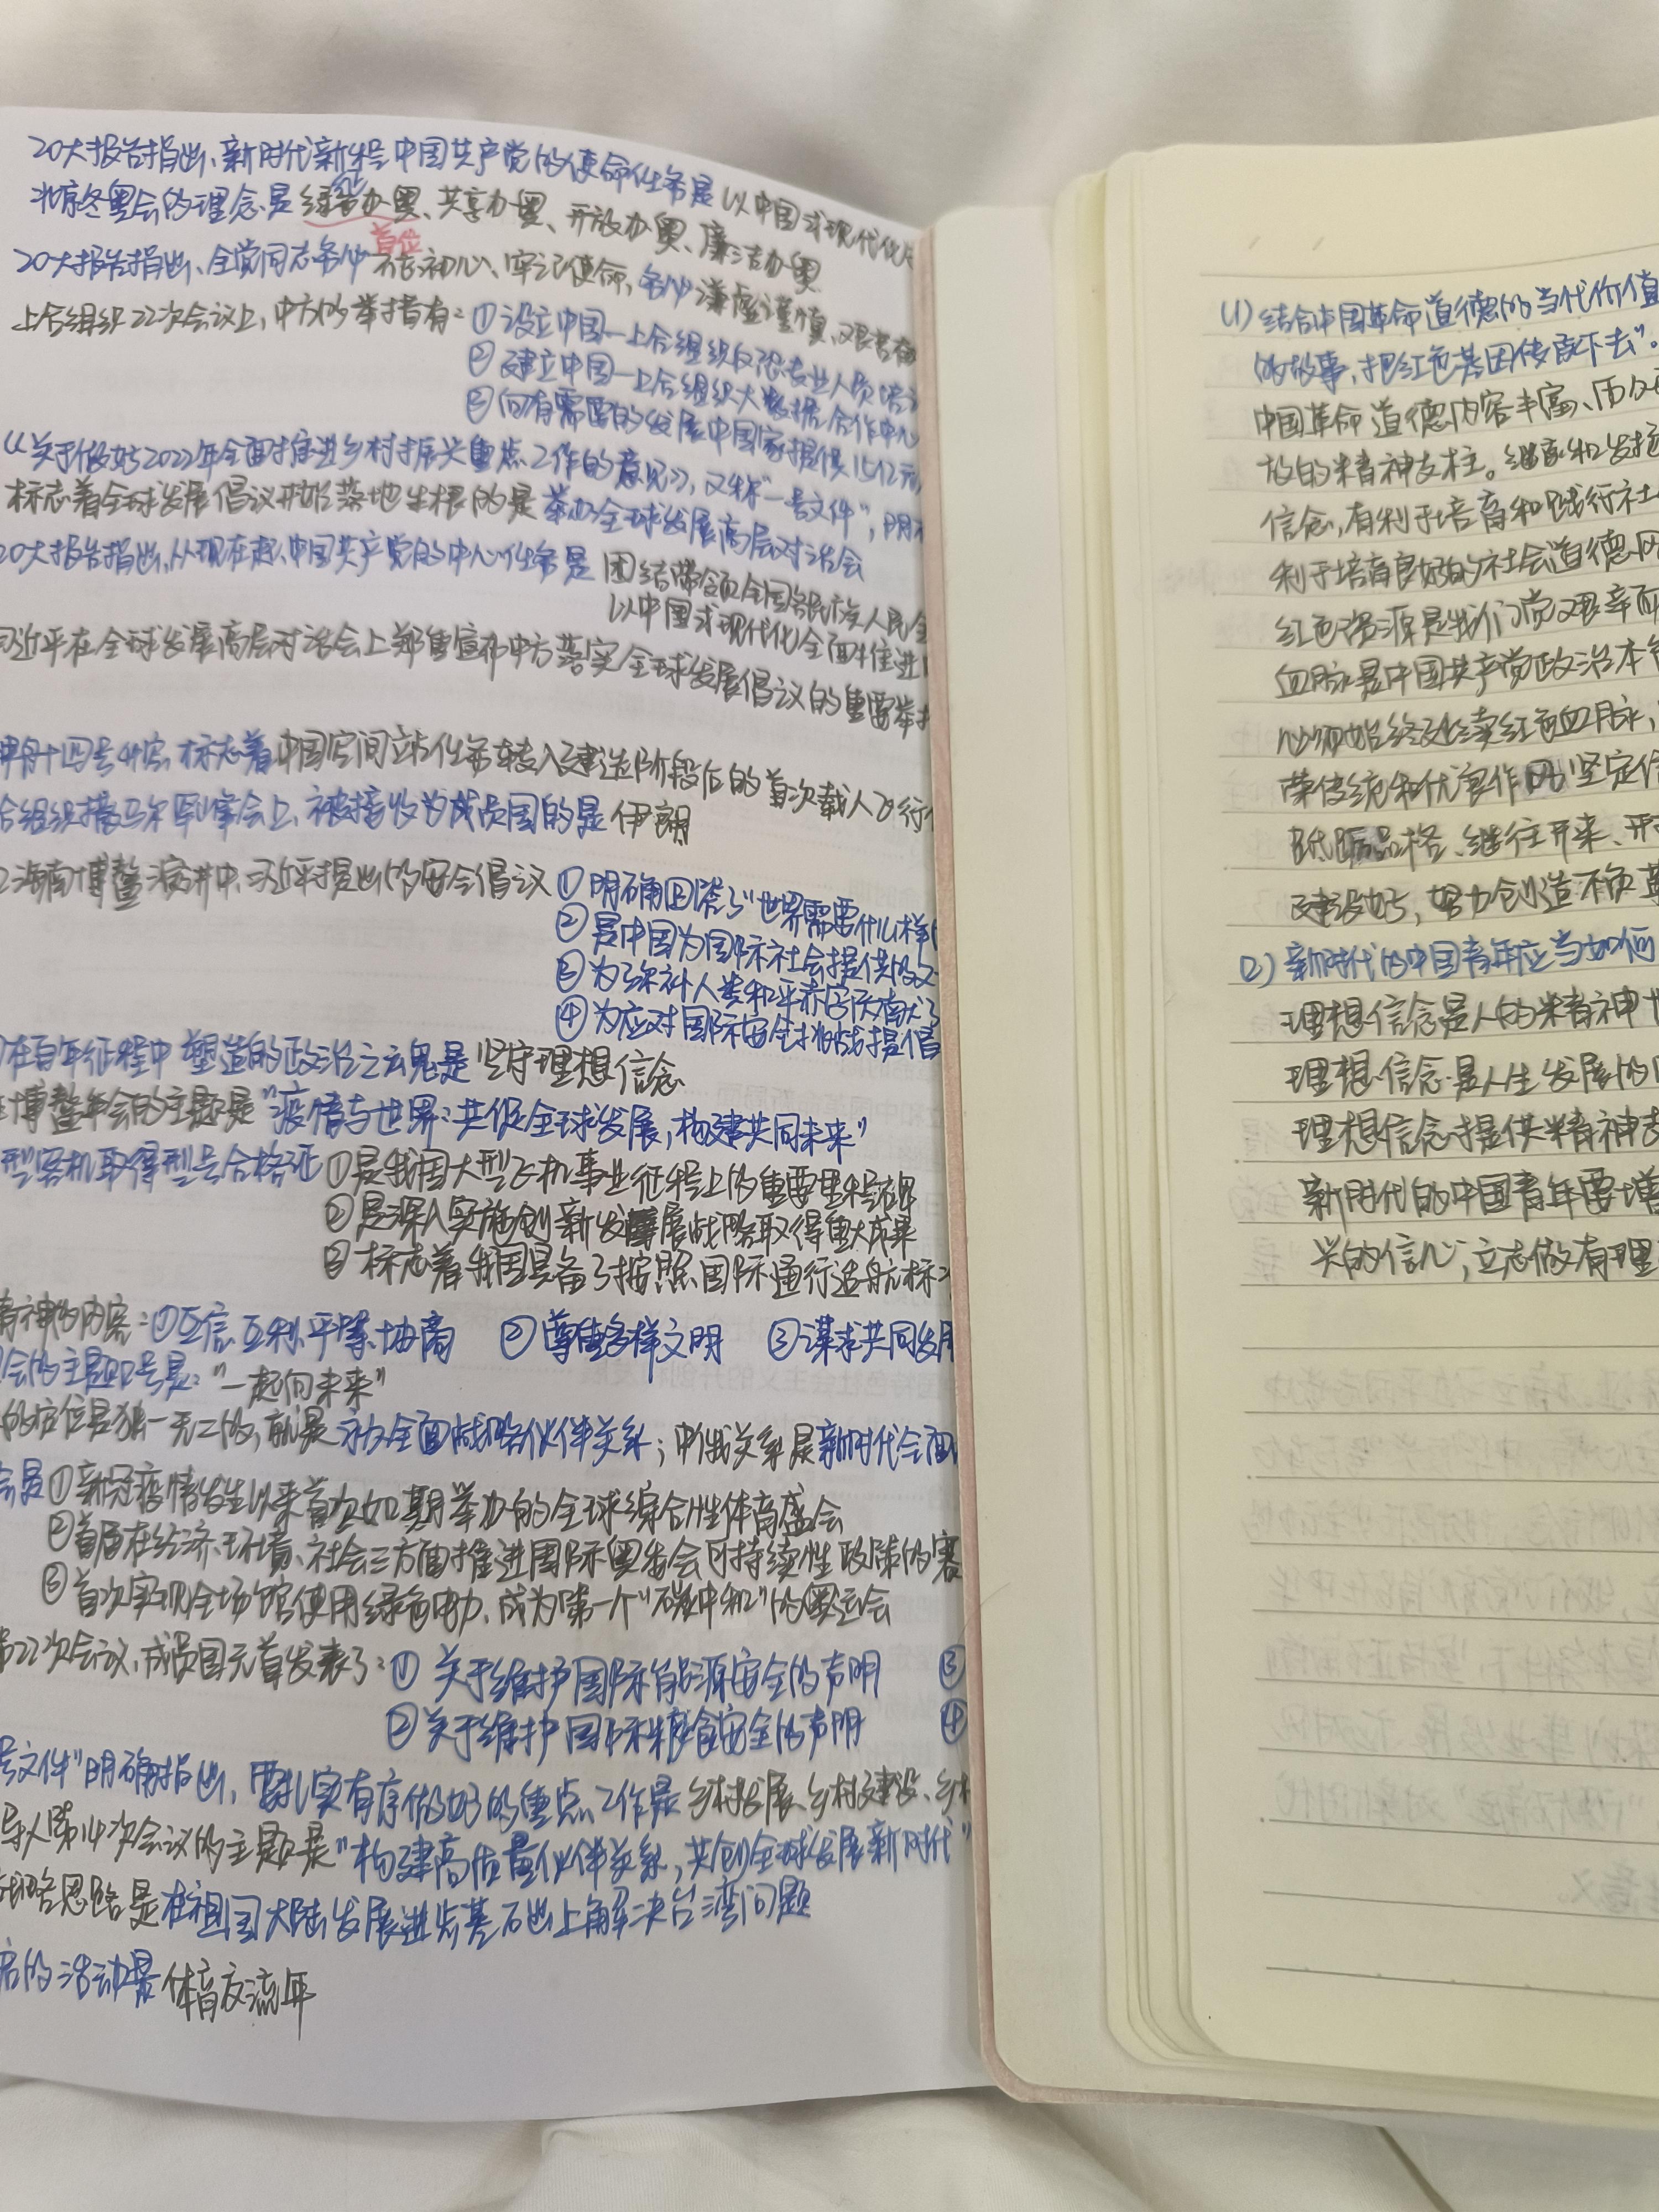 20大报告指出,新时代新征程中国共产党的使命任务是 以中国式现代化
北京冬奥会的理念是 绿色办奥、共享办奥、开放办奥、廉洁办奥
首位
20大报告指出,全党同志务必不忘初心、牢记使命,务必谦虚谨慎、艰苦奋
上合组织22次会议上,中方的举措有:①设立中国—上合组织反恐专业人员培
②建立中国—上合组织大数据合作中心
③向有需要的发展中国家提供15亿元
《关于做好2022年全面推进乡村振兴重点工作的意见》,又称"一号文件",明
标志着全球发展倡议开始落地生根的是 举办全球发展高层对话会
20大报告指出,从现在起,中国共产党的中心任务是 团结带领全国各民族人民全
以中国式现代化全面推进
习近平在全球发展高层对话会上郑重宣布中方落实全球发展倡议的重要举
神舟十四号升空,标志着 中国空间站任务转入建造阶段后的首次载人飞行
合组织撒马尔罕峰会上,被接收为成员国的是 伊朗
海南博鳌演讲中,习近平提出的安全倡议 ①明确回答了"世界需要什么样
②是中国为国际社会提供的又一
③为弥补人类和平赤字贡献了
④为应对国际安全挑战提倡
在百年征程中 塑造的政治之云鬼是 坚守理想信念
博鳌年会的主题是"疫情与世界:共促全球发展,构建共同未来"
型客机取得型号合格证 ①是我国大型飞机事业征程上的重要里程碑
②是深入实施创新发展战略取得重大成果
③标志着我国具备了按照国际通行适航标
精神的内容:①互信、互利、平等、协商 ②尊重多样文明 ③谋求共同发展
会的主题口号是:"一起向未来"
的定位是独一无二的,就是 永久全面战略伙伴关系;中俄关系是 新时代全面
会是①新冠疫情发生以来首次如期举办的全球综合性体育盛会
②首届在经济、环境、社会三方面推进国际奥委会可持续性政策的赛
③首次实现全场馆使用绿色电力,成为第一个"碳中和"的奥运会
第22次会议,成员国元首发表了:①关于维护国际能源安全的声明 ③
②关于维护国际粮食安全的声明 ④
号文件"明确指出,要扎实有序做好的重点工作是 乡村发展、乡村建设、乡村
导人第14次会议的主题是"构建高质量伙伴关系,共创全球发展新时代"
战略思路是 在祖国大陆发展进步基石出上解决台湾问题
启的活动是 体育交流年
(1)结合中国革命道德的当代价值
的故事,把红色基因传承下去"。
中国革命道德内容丰富、历久
放的精神支柱。继承和发扬
信念,有利于培育和践行社
利于培育良好的社会道德风
红色资源是我们党艰辛而
血脉是中国共产党政治本色
必须始终赓续红色血脉,
荣传统和优良作风,坚定信
砥砺品格、继往开来、开
建设好,努力创造不负革
(2)新时代的中国青年应当如何
理想信念是人的精神
理想信念是人生发展的
理想信念提供精神支
新时代的中国青年要增
兴的信心,立志做有理